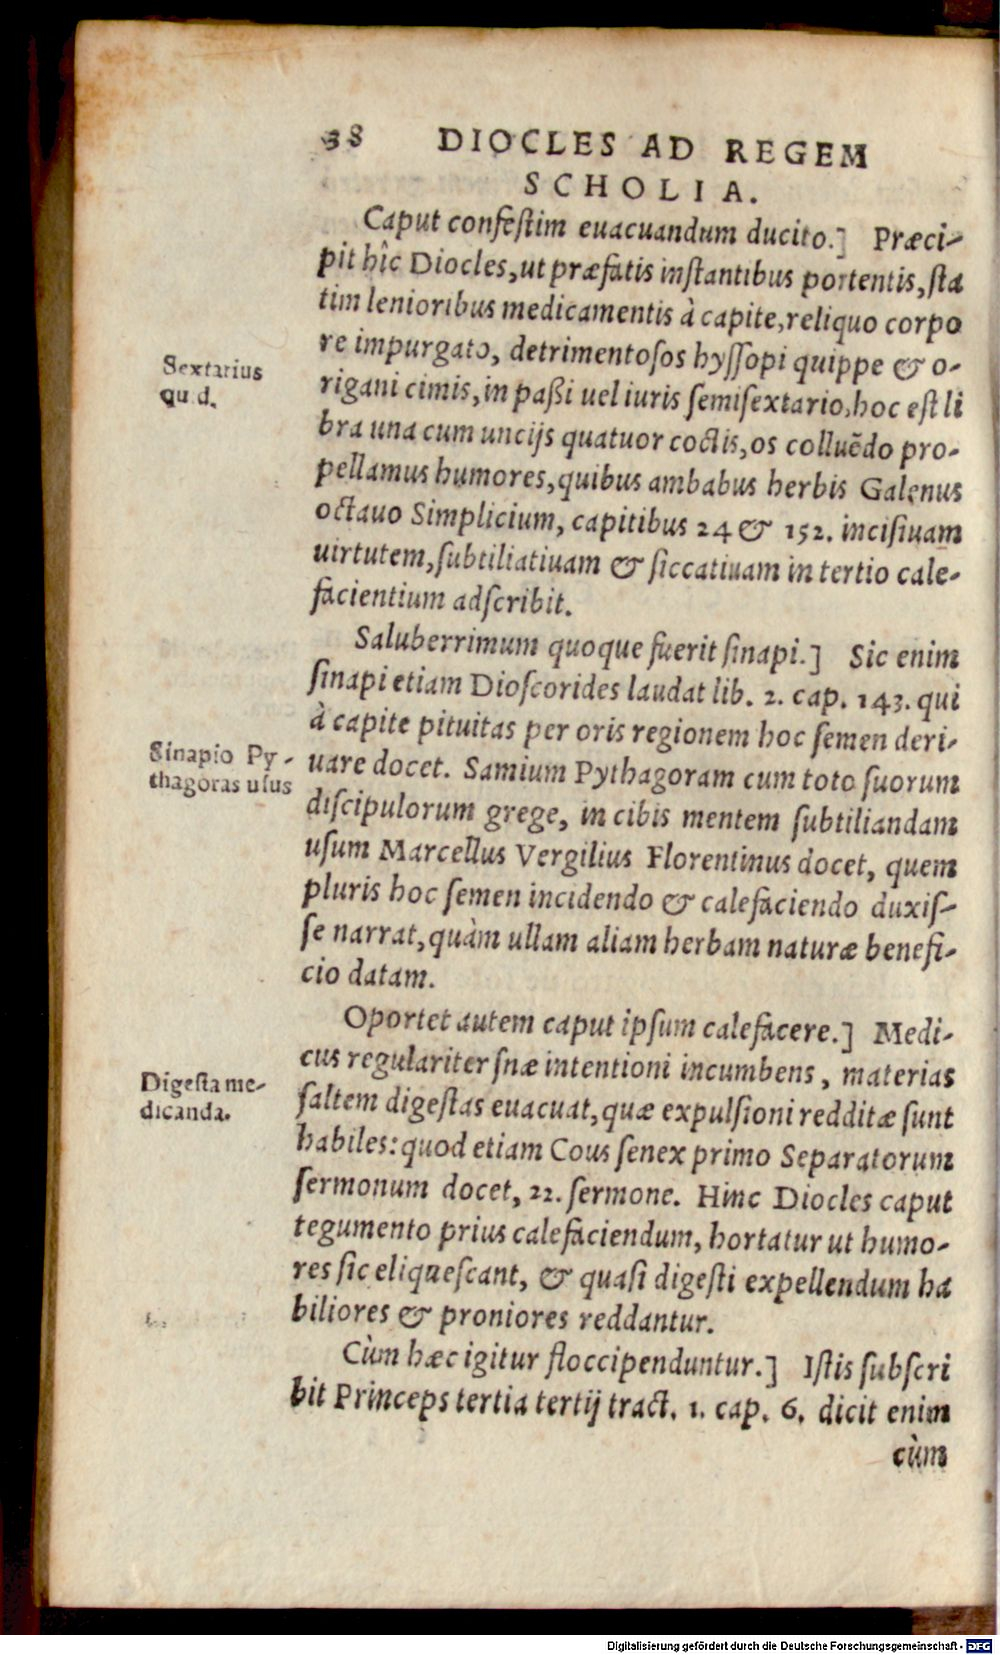 38 DIOCLES AD REGEM
SCHOLIA.
Caput confeſtim euacuandum ducito.] Præci-
pit hîc Diocles, ut præfatis inſtantibus portentis, ſta
tim lenioribus medicamentis à capite, reliquo corpo
re impurgato, detrimentoſos hyſſopi quippe & o-
Sextarius
quid.
rigani cimis, in paßi uel iuris ſemiſextario, hoc eſt li
bra una cum uncijs quatuor coctis, os colluēdo pro-
pellamus humores, quibus ambabus herbis Galenus
octauo Simplicium, capitibus 24 & 152. inciſiuam
uirtutem, ſubtiliatiuam & ſiccatiuam in tertio cale-
facientium adſcribit.
Saluberrimum quoque fuerit ſinapi.] Sic enim
ſinapi etiam Dioſcorides laudat lib. 2. cap. 143. qui
à capite pituitas per oris regionem hoc ſemen deri-
Sinapio Py-
thagoras uſus
uare docet. Samium Pythagoram cum toto ſuorum
diſcipulorum grege, in cibis mentem ſubtiliandam
uſum Marcellus Vergilius Florentinus docet, quem
pluris hoc ſemen incidendo & calefaciendo duxiſ-
ſe narrat, quàm ullam aliam herbam naturæ benefi-
cio datam.
Oportet autem caput ipſum calefacere.] Medi-
cus regulariter ſnæ intentioni incumbens, materias
Digeſta me-
dicanda.
ſaltem digeſtas euacuat, quæ expulſioni redditæ ſunt
habiles: quod etiam Cous ſenex primo Separatorum
ſermonum docet, 22. ſermone. Hinc Diocles caput
tegumento prius calefaciendum, hortatur ut humo-
res ſic eliqueſcant, & quaſi digeſti expellendum ha
biliores & proniores reddantur.
Cùm hæc igitur floccipenduntur.] Iſtis ſubſcri
bit Princeps tertia tertij tract. 1. cap. 6. dicit enim
cùm
Digitalisierung gefördert durch die Deutsche Forschungsgemeinschaft - DFG